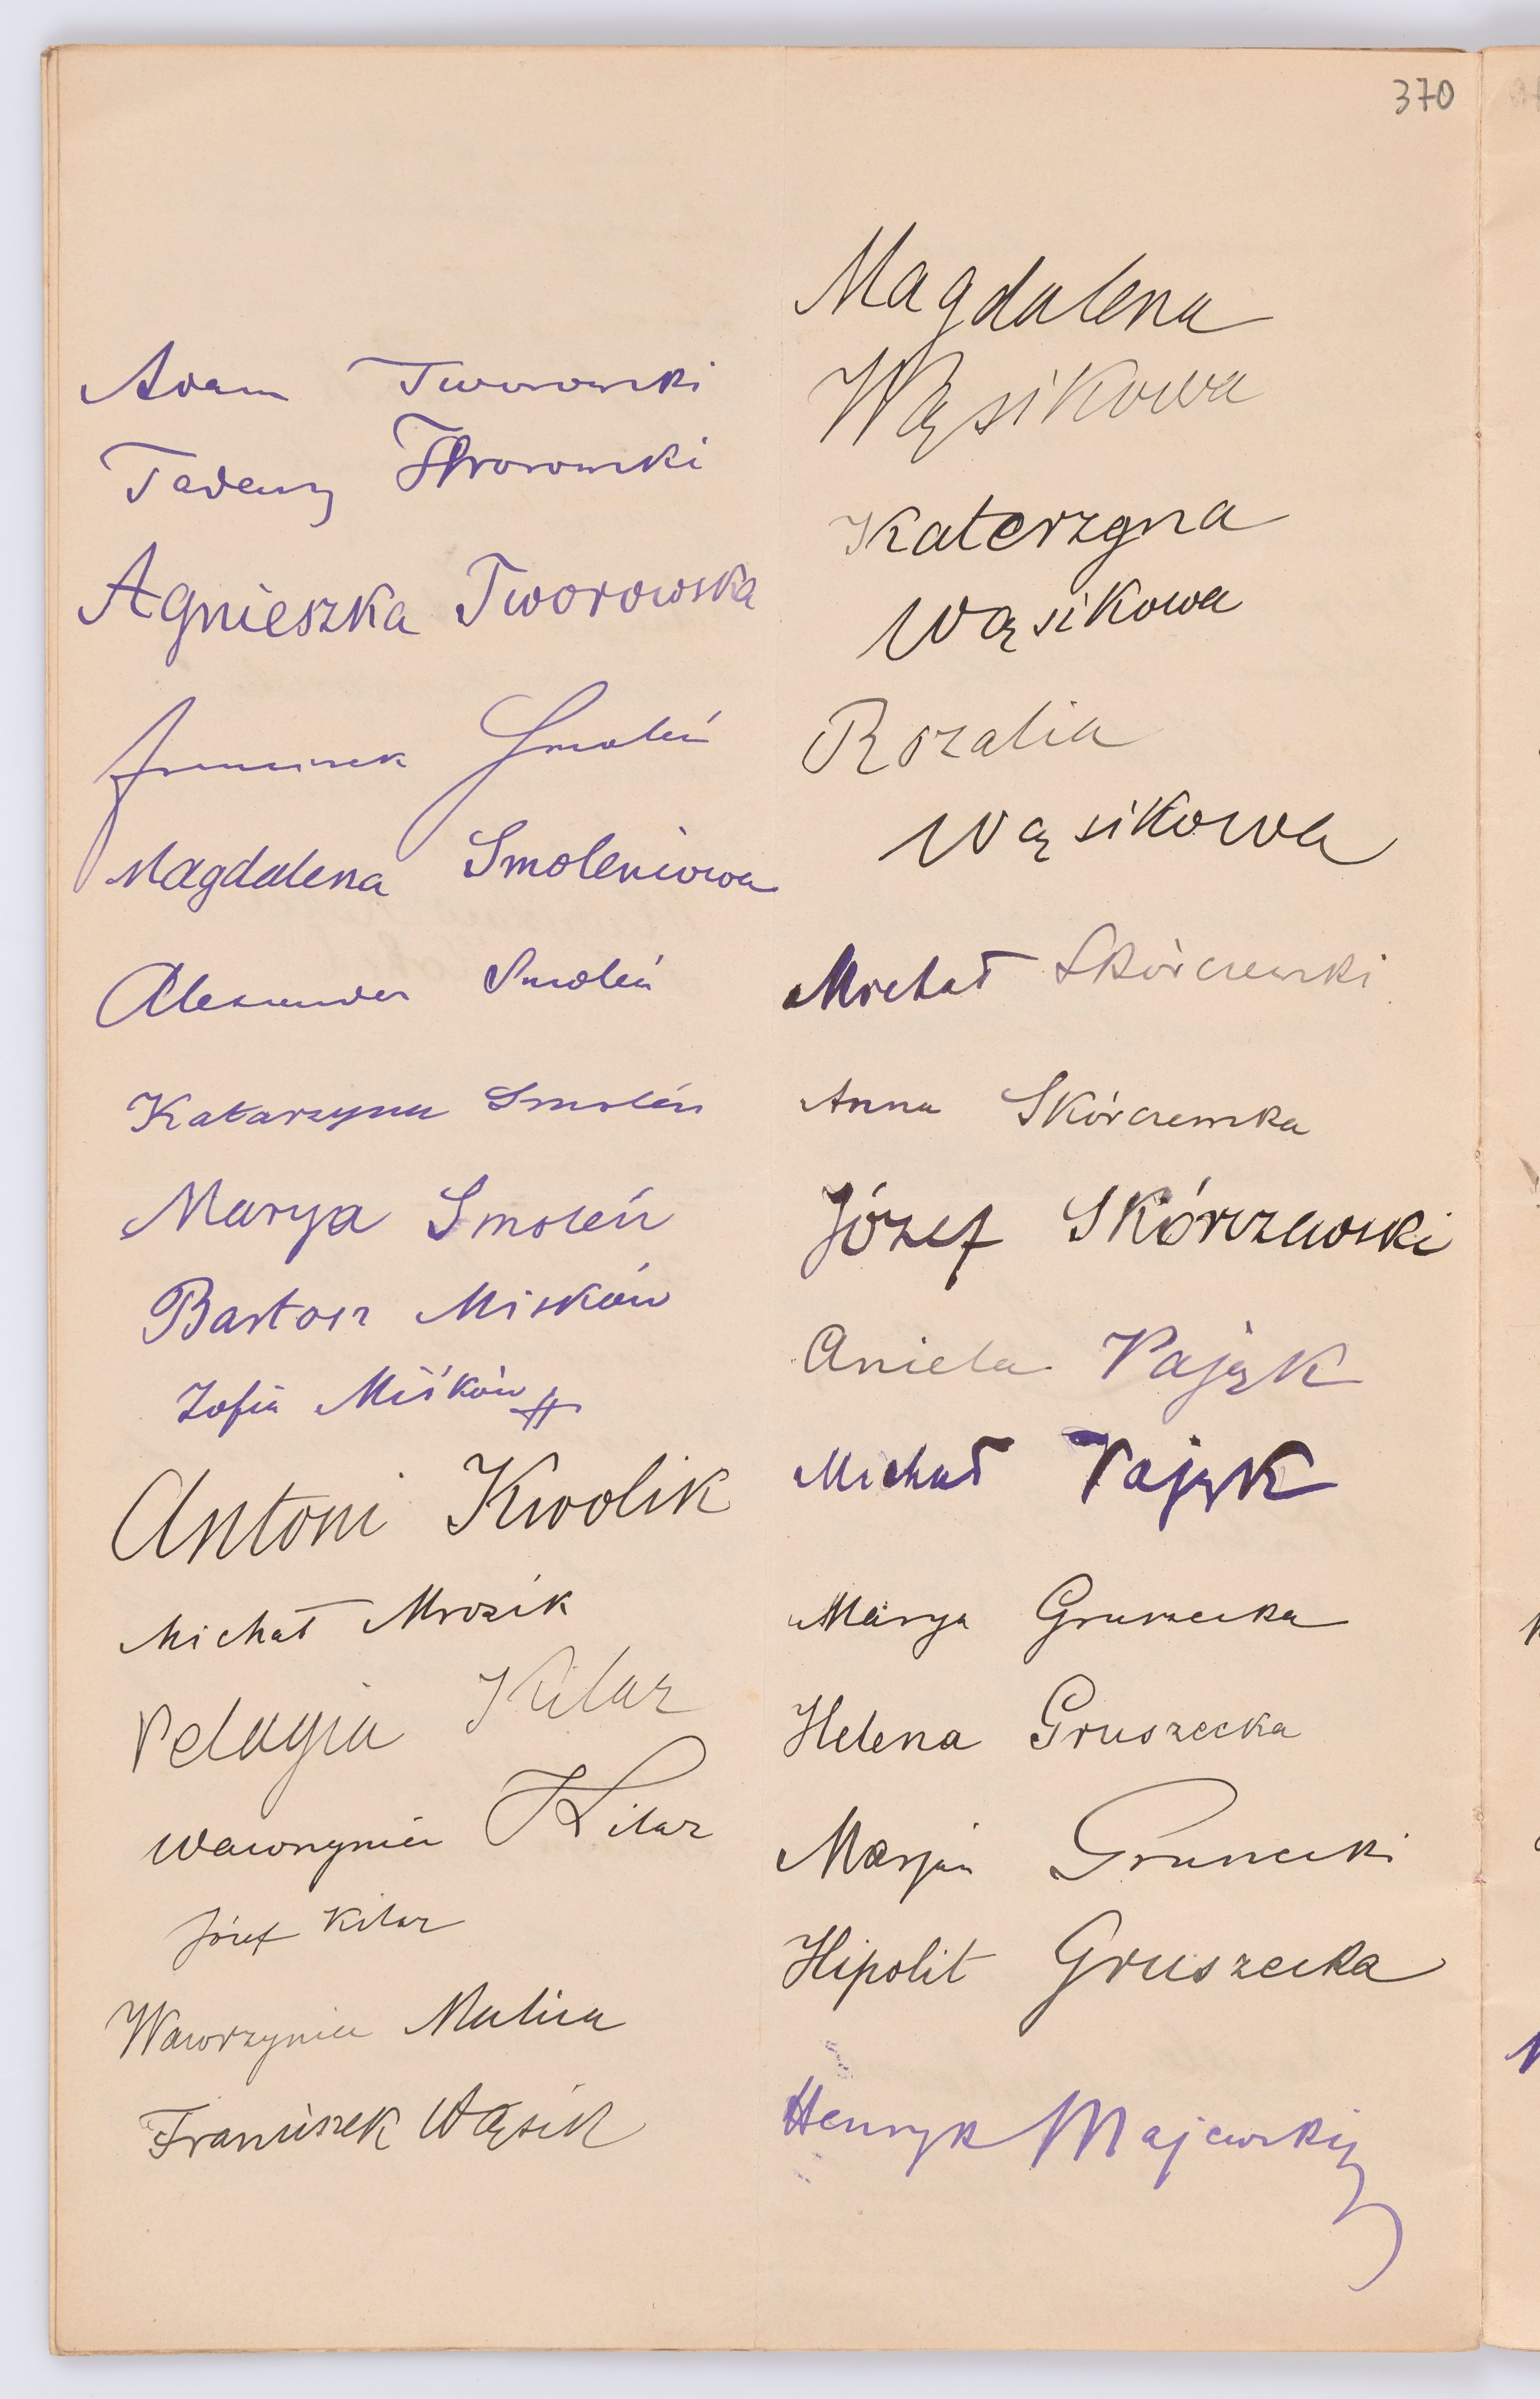 370
Adam Tworowski
Tadeusz Tworowski
Agnieszka Tworowska
Franciszek Smoleń
Magdalena Smoleniowa
Alexander Smoleń
Katarzyna Smoleń
Marya Smoleń
Bartosz Miśków
Zofia Miśków
Antoni Kwolik
Michał Mrozik
Pelagia Kilar
Wawrzyniec Kilar
Józef Kilar
Wawrzyniec Malica
Franciszek Wąsik
Magdalena
Wąsikowa
Katerzyna
Wąsikowa
Rozalia
Wąsikowa
Michał Skórczewski
Anna Skórczewska
Józef Skórczewski
Aniela Pająk
Michał Pająk
Marya Gruszecka
Helena Gruszecka
Marjan Gruszecki
Hipolit Gruszecka
Henryk Majewski